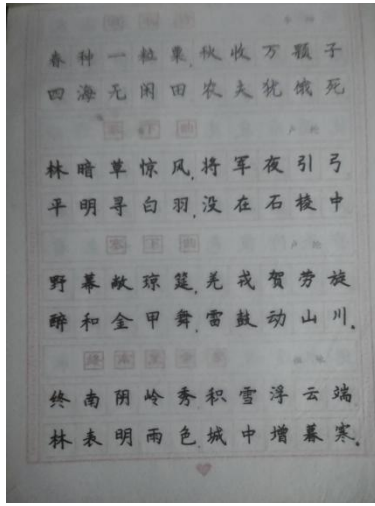 春种一粒粟,秋收万颗子
四海无闲田农夫犹饿死
林暗草惊风,将军夜引弓
平明寻白羽,没在石棱中
野幕敞琼筵,羌戎贺劳旋
醉和金甲舞,雷鼓动山川.
终南阴岭秀,积雪浮云端
林表明雨色,城中增暮寒.